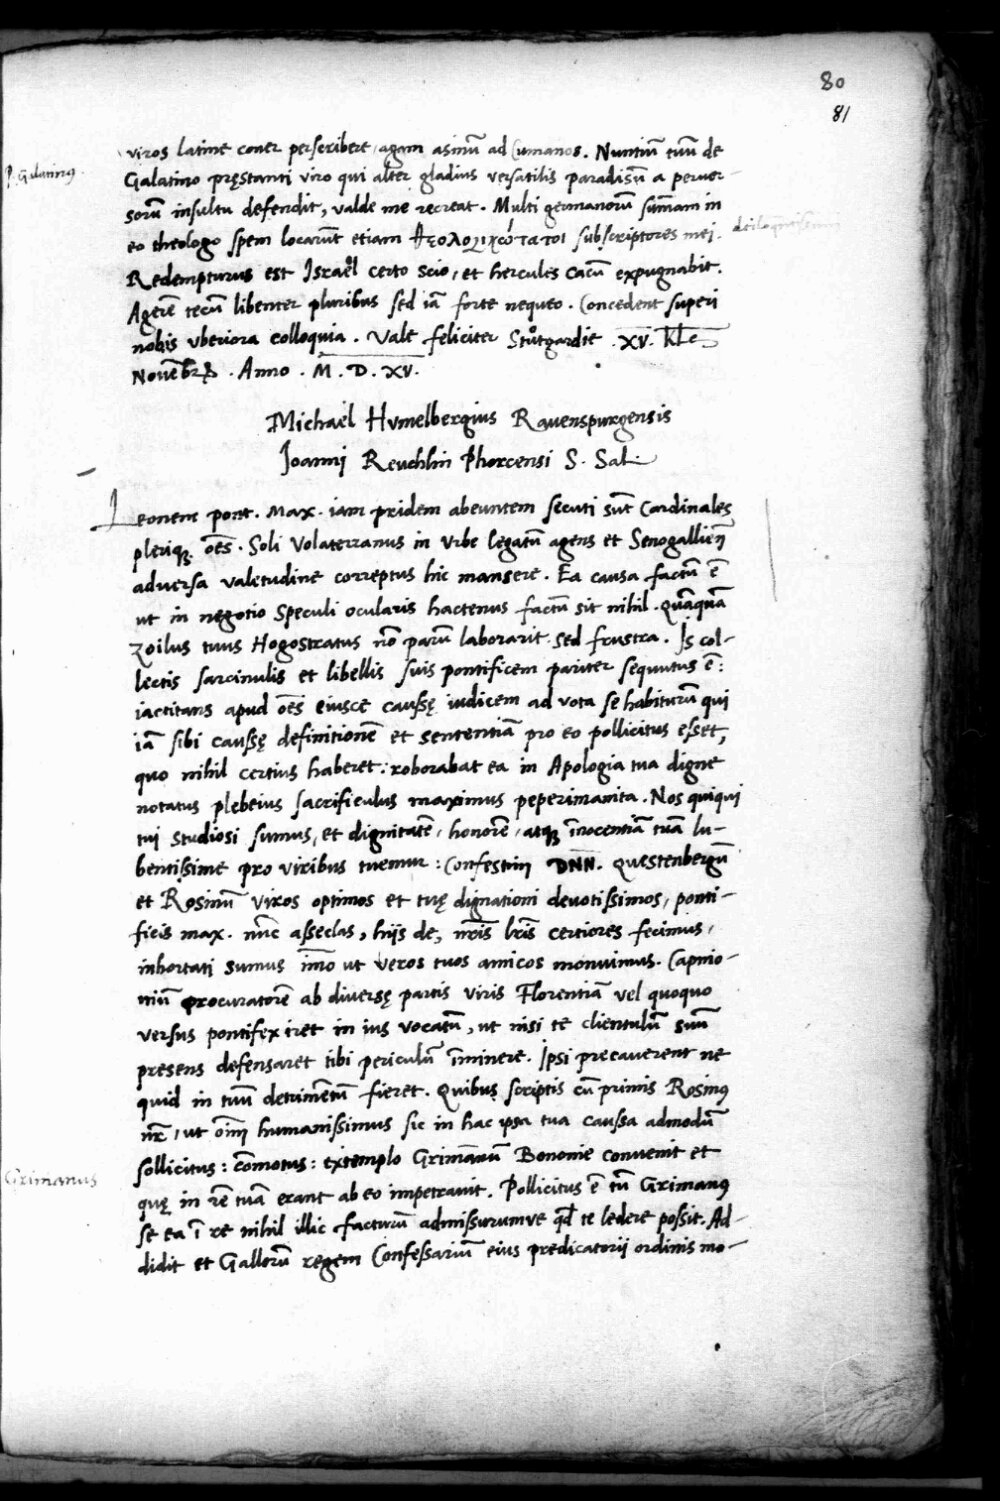 80
81
viros latine coner perscribere, agam asinũ ad Cumanos. Nuntiũ tuũ de
P. Galatinus.
Galatino pręstanti viro qui alter gladius versatilis paradisũ a perver-
sorũ insultu defendit, valde me recreat. Multi germanorũ sum̃am in
eo theologo spem locarũt etiam Θεολογικώτατοι subscriptores mei.
Redempturus est Israël certo scio, et hercules Cacũ expugnabit.
Agerẽ tecũ libenter pluribus sed iã forte nequeo. Concedent superi
nobis vberiora colloquia. Vale feliciter Stůtgardie .XV. Kłe
Novẽbrꝭ. Anno. M.D.XV.
Michaël Hvmelbergius Ravenspurgensis
Joanni Reuchlin Phorcensi S. Sal.
Leonem pont. Max. iam pridem abeuntem secuti sũt Cardinales
pleriqꝫ oẽs. Soli Volaterranus in Vrbe legatũ agens et Senogalliẽn
adversa valetudine correptus hic mansere. Ea causa factũ ẽ
ut in negotio Speculi ocularis hactenus factũ sit nihil. Quãquã
zoilus tuus Hogostratus nõ parũ laborarit. sed frustra. Is col-
lectis sarcinulis et libellis suis pontificem pariter sequutus ẽ:
iactitans apud oẽs eiusce caussę iudicem ad vota se habiturũ qui
iã sibi caussę definitionẽ et sententiã pro eo pollicitus esset,
quo nihil certius haberet: roborabat ea in Apologia tua digne
notatus plebeius sacrificulus maximus peperimanita. Nos quiqui
tui studiosi sumus, et dignitatẽ, honorẽ, atqꝫ ĩnocentiã tuã lu-
bentissime pro viribus tuemur: Confestim DN̄N. Questenbergũ
et Rosinũ viros optimos et tuę dignationi devotissimos, ponti-
ficis max. nũc asseclas, hiis de, nr̃is lr̃is certiores fecimus,
inhortati sumus im̃o ut veros tuos amicos monuimus. Capnio-
niũ procuratorẽ ab diversę partis viris Florentiã vel quoquo
versus pontifex iret in ius vocatũ, ut nisi te clientulũ suũ
presens defensaret tibi periculũ ĩminere. Ipsi precaverent ne
quid in tuũ detrimẽtũ fieret. Quibus scriptis cũ primis Rosinus
nr̃, ut oĩm humanissimus sic in hac ipsa tua caussa admodũ
sollicitus: cõmotus: extemplo Grimãnũ Bononie convenit et
Grimanus
quę in rẽ tuã erant ab eo impetravit. Pollicitus ẽ tũ Grimanus
se ea ĩ re nihil illic facturũ admissurumve qđ te ledere possit. Ad-
didit et Gallorũ regem Confessariũ eius predicatorij ordinis mo-